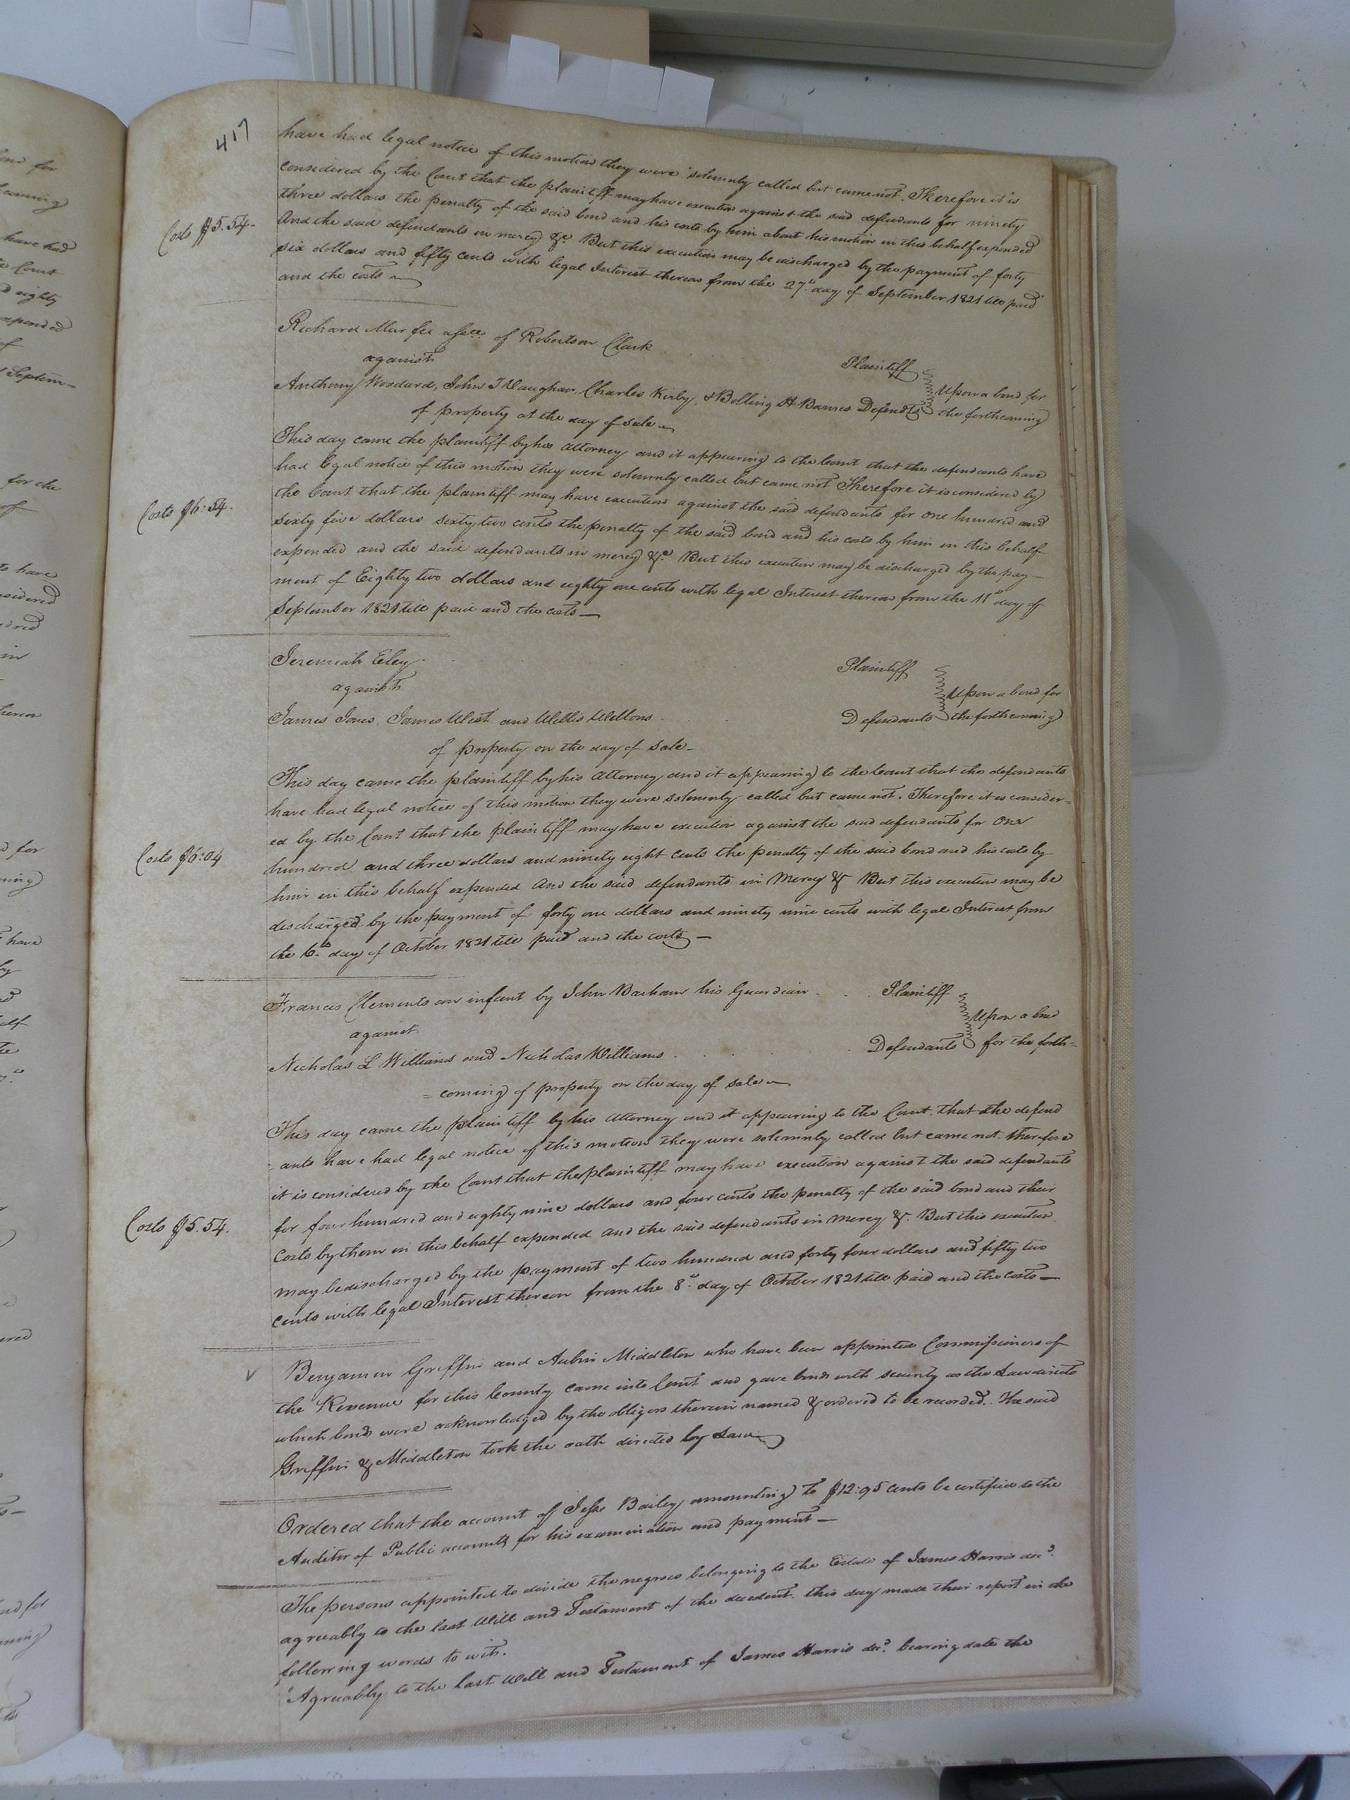 417
have had legal notice of this motion they were solemnly called but came not. Therefore it is
considered by the Court that the plaintiff may have execution against the said defendants for ninety
three dollars the penalty of the said bond and his costs by him about his motion in this behalf expended
Costs $5.54.
And the said defendants in mercy &c. But this execution may be discharged by the payment of forty
six dollars and fifty cents with legal Interest thereon from the 27th day of September 1821 till paid
and the costs
Richard Murfee assee. of Robertson Clark Plaintiff
against
Anthony Woodard, John T Vaughan, Charles Kirby, & Bolling H Barnes Defendts
Upon a bond for
the forthcoming
of property at the day of sale
This day came the plaintiff by his attorney and it appearing to the Court that the defendants have
had legal notice of this motion they were solemnly called but came not Therefore it is considered by
the Court that the plaintiff may have execution against the said defendants for one hundred and
Costs $6.54.
sixty five dollars sixty two cents the penalty of the said bond and his costs by him in this behalf
expended and the said defendants in mercy &c. But this execution may be discharged by the pay-
ment of Eighty two dollars and eighty one cents with legal Interest thereon from the 11th day of
September 1821 till paid and the costs
Jeremiah Eley Plaintiff
against
James Jones, James West and Willis Wellons Defendants
Upon a bond for
the forthcoming
of property on the day of sale
This day came the plaintiff by his attorney and it appearing to the Court that the defendants
have had legal notice of this motion they were solemnly called but came not. Therefore it is consider-
ed by the Court that the plaintiff may have execution against the said defendants for one
Costs $6.04
hundred and three dollars and ninety eight cents the penalty of the said bond and his costs by
him in this behalf expended And the said defendants in Mercy & But this execution may be
discharged by the payment of forty one dollars and ninety nine cents with legal Interest from
the 6th day of October 1821 till paid and the costs
Francis Clements an infant by John Barham his Guardian Plaintiff
against
Nicholas L Williams and Nicholas Williams Defendants
Upon a bond
for the forth=
=coming of property on the day of sale
This day came the plaintiff by his attorney and it appearing to the Court that the defend
=ants have had legal notice of this motion they were solemnly called but came not. therefore
it is considered by the Court that the plaintiff may have execution against the said defendants
for four hundred and eighty nine dollars and four cents the penalty of the said bond and their
Costs $5.54.
costs by them in this behalf expended and the said defendants in mercy &. But this execution
may be discharged by the payment of two hundred and forty four dollars and fifty two
cents with legal Interest thereon from the 8th day of October 1821 till paid and the costs
Benjamin Griffin and Aubin Middleton who have been appointed Commissioners of
the Revenue for this County came into Court and gave bonds with security as the Law directs
which bonds were acknowledged by the obligors therein named & ordered to be recorded. The said
Griffin & Middleton took the oath directed by Law
Ordered that the account of Jesse Bailey amounting to $12.95 cents be certified to the
Auditor of Public accounts for his examination and payment
The persons appointed to divide the negroes belonging to the Estate of James Harris decd.
agreeably to the last Will and Testament of the decedent. this day made their report in the
following words to wit.
"Agreeably to the last Will and Testament of James Harris decd. bearing date the